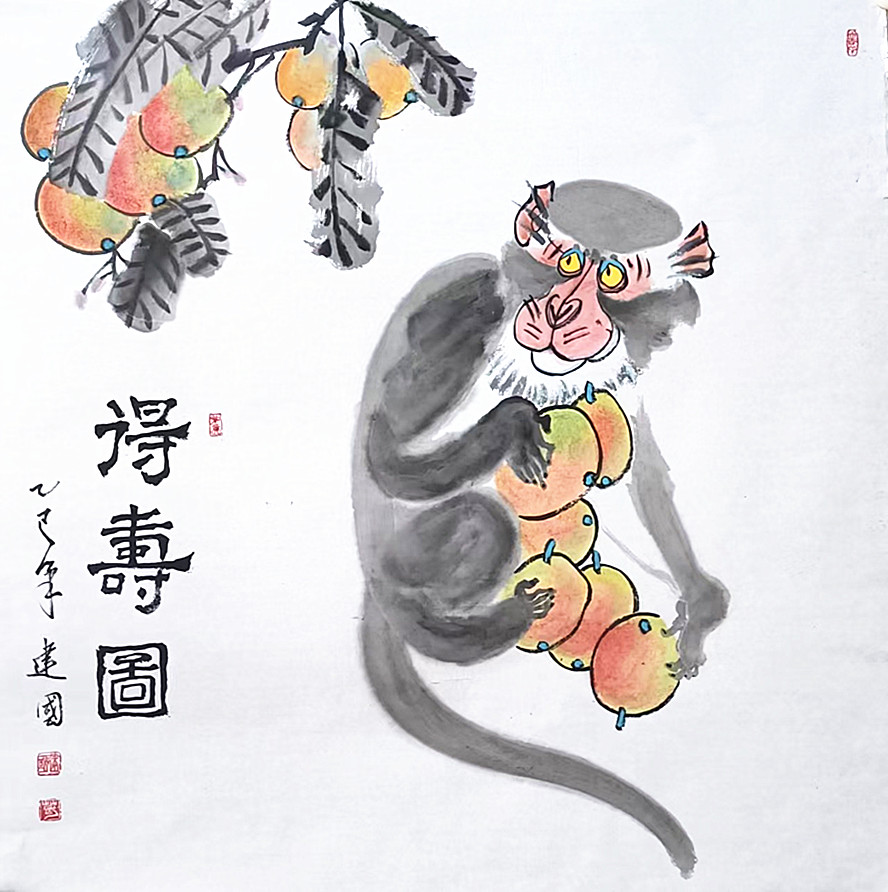 得壽圖
乙巳年
建國